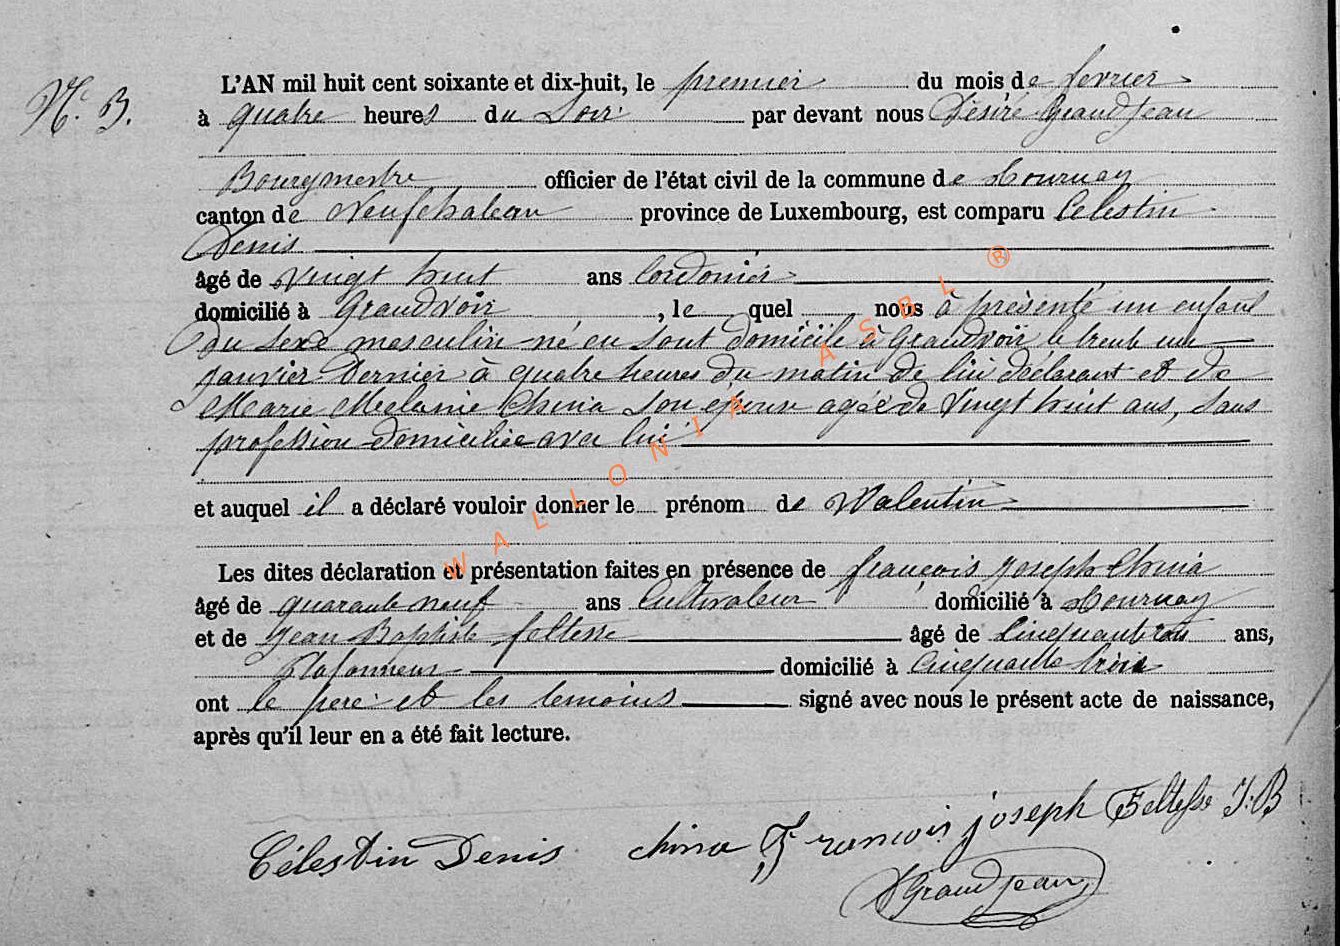 N.° 3.
L'AN mil huit cent soixante et dix-huit, le premier du mois de fevrier
à quatre heures du Soir par devant nous Désiré Grandjean
Bourgmestre officier de l'état civil de la commune de Tournay
canton de Neufchateau province de Luxembourg, est comparu Celestin
Denis
âgé de vingt huit ans Cordonier
domicilié à Grandvoir, le quel nous à présenté un enfant
du sexe masculin né en sont domicile à Grandvoir le trente un
janvier Dernier à quatre heures du matin de lui déclarant et de
Marie Melanie China son épouse agée de Vingt huit ans, Sans
profession domiciliée avec lui
et auquel il a déclaré vouloir donner le prénom de Valentin
Les dites déclaration et présentation faites en présence de françois Joseph China
âgé de quarante neuf ans Cultivateur domicilié à Tournay
et de Jean Baptiste feltesse âgé de Cinquante trois ans,
Plafonneur domicilié à Cinquante trois
ont le pere et les temoins signé avec nous le présent acte de naissance,
après qu'il leur en a été fait lecture.
Célestin Denis china François joseph Feltesse J.B
DGrandjean
WALLONIA ASBL ®